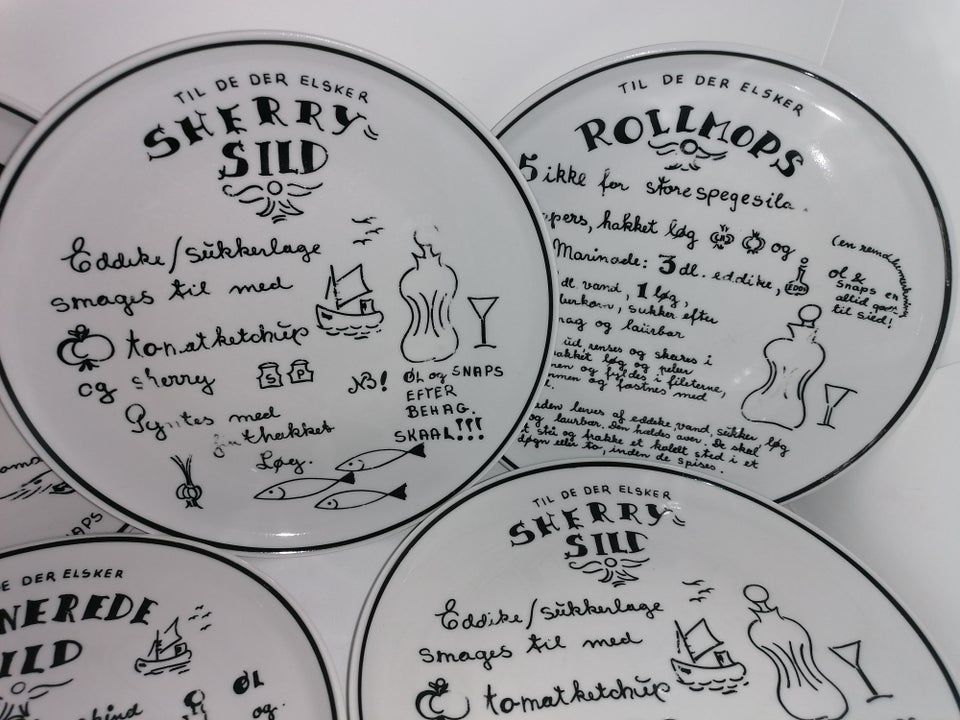 TIL DE DER ELSKER
SHERRY
SILD
Eddike/sukkerlage
smages til med
tomatketchup
og sherry
S P
Pyntes med
finthakket
Løg.
NB! ØL og SNAPS
EFTER
BEHAG.
SKAAL!!!
TIL DE DER ELSKER
ROLLMOPS
5 ikke for store spegesild.
hakket løg og
Marinade: 3 dl. eddike,
EDD
dl. vand, 1 løg,
sukker efter
og laurbær
renses og skæres i
hakket løg og peber
og fyldes i fileterne,
og fastnes med
laves af eddike, vand, sukker, løg
og laurbær. Den hældes over. De skal
stå og trække et koldt sted i et
døgn eller to, inden de spises.
øl &
Snaps en
altid
til sild!
APS
DER ELSKER
NEREDE
ILD
ØL
og
TIL DE DER ELSKER
SHERRY
SILD
Eddike/sukkerlage
smages til med
tomatketchup